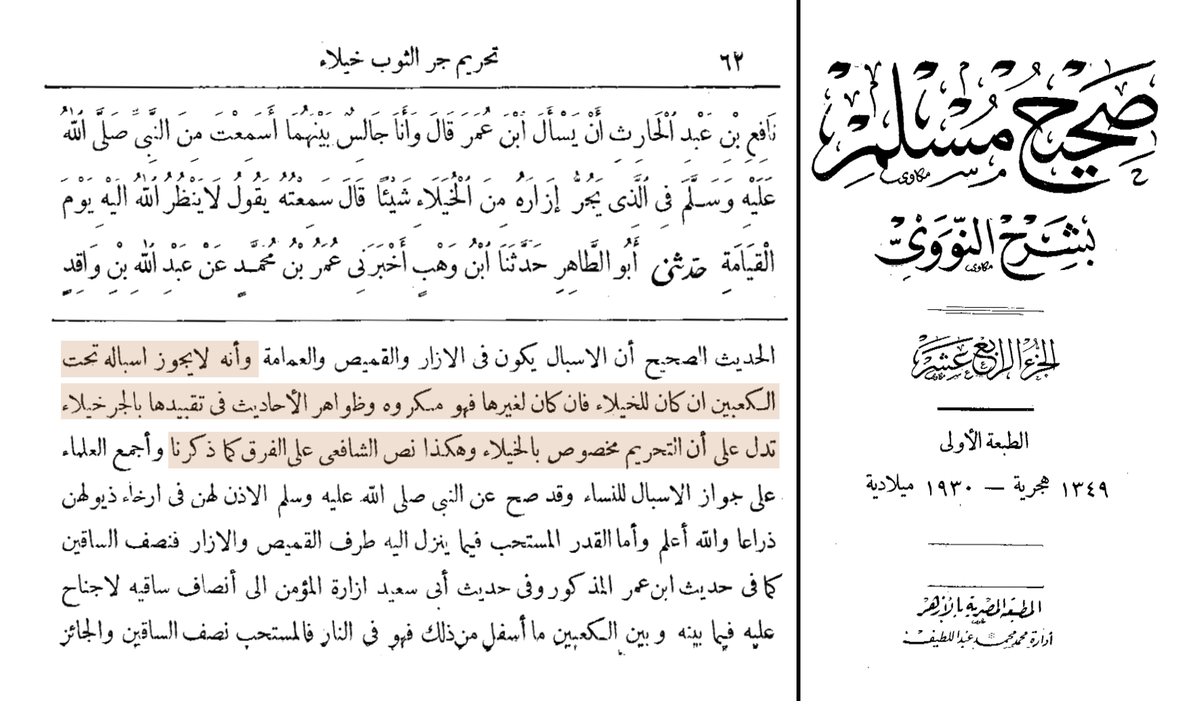 صَحِيحُ مُسْلِمٍ
بِشَرْحِ النَّوَوِيِّ
الجزء الرابع عشر
الطبعة الأولى
١٣٤٩ هجرية — ١٩٣٠ ميلادية
المطبعة المصرية بالأزهر
ادارة محمد محمد عبد اللطيف
٦٢ تحريم جر الثوب خيلاء
نَافِعِ بْنِ عَبْدِ الْحَارِثِ أَنْ يَسْأَلَ ابْنَ عُمَرَ قَالَ وَأَنَا جَالِسٌ بَيْنَهُمَا أَسَمِعْتَ مِنَ النَّبِيِّ صَلَّى اللهُ
عَلَيْهِ وَسَلَّمَ فِى الَّذِى يَجُرُّ إِزَارَهُ مِنَ الْخُيَلَاءِ شَيْئًا قَالَ سَمِعْتُهُ يَقُولُ لَا يَنْظُرُ اللهُ الَيْهِ يَوْمَ
الْقِيَامَةِ حدثنى أَبُو الطَّاهِرِ حَدَّثَنَا ابْنُ وَهْبٍ أَخْبَرَنِى عُمَرُ بْنُ مُحَمَّدٍ عَنْ عَبْدِ اللهِ بْنِ وَاقِدٍ
الحديث الصحيح أن الاسبال يكون فى الازار والقميص والعمامة وأنه لايجوز اسباله تحت
الكعبين ان كان للخيلاء فان كان لغيرها فهو مكروه وظواهر الأحاديث فى تقييدها بالجر خيلاء
تدل على أن التحريم مخصوص بالخيلاء وهكذا نص الشافعى على الفرق كما ذكرنا وأجمع العلماء
على جواز الاسبال للنساء وقد صح عن النبى صلى الله عليه وسلم الاذن لهن فى ارخاء ذيولهن
ذراعا والله أعلم وأما القدر المستحب فيما ينزل اليه طرف القميص والازار فنصف الساقين
كما فى حديث ابن عمر المذكور وفى حديث أبى سعيد ازارة المؤمن الى أنصاف ساقيه لاجناح
عليه فيما بينه وبين الكعبين ما أسفل من ذلك فهو فى النار فالمستحب نصف الساقين والجائز